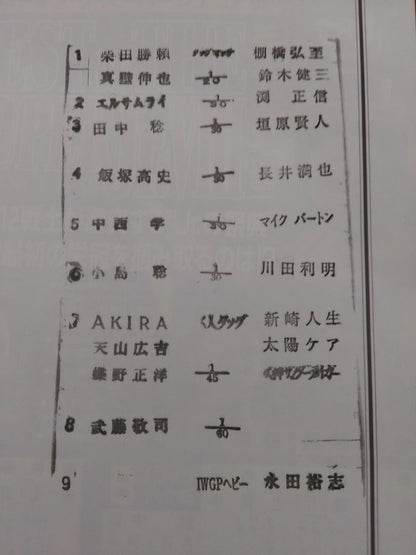 1 柴田勝頼 タッグマッチ 棚橋弘至
真壁伸也 1/20 鈴木健三
2 エルサムライ 1/30 渕正信
3 田中稔 1/30 垣原賢人
4 飯塚高史 1/30 長井満也
5 中西学 1/30 マイク バートン
6 小島聡 1/30 川田利明
7 AKIRA 6人タッグ 新崎人生
天山広吉 太陽ケア
蝶野正洋 1/45
8 武藤敬司 1/60
9 IWGPヘビー 永田裕志